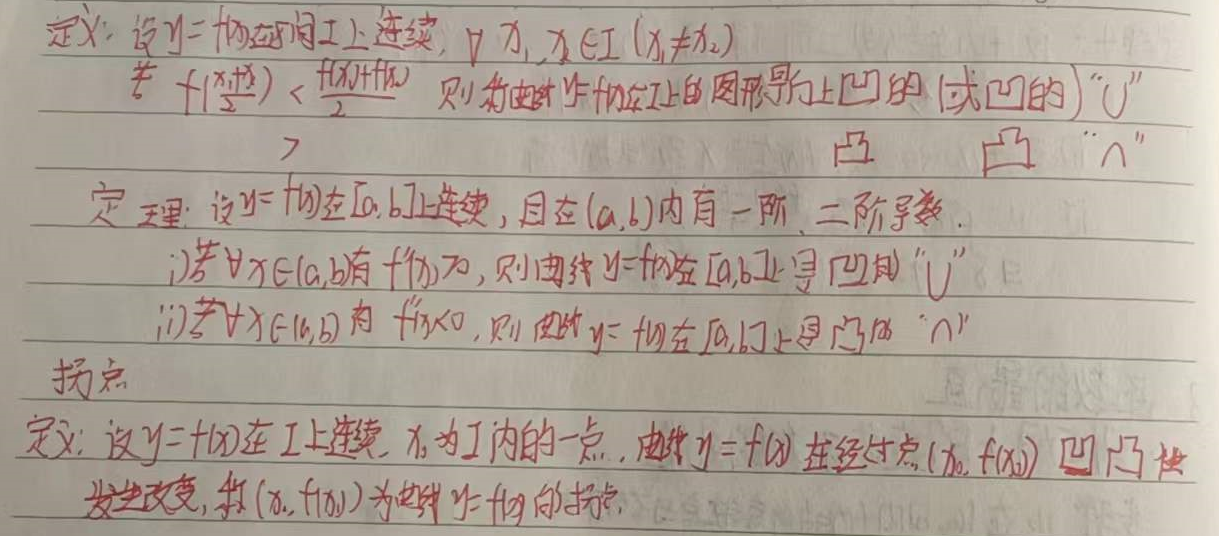 定义: 设y=f(x)在区间I上连续, ∀ x₁, x₂∈I (x₁≠x₂)
若 f(\frac{x₁+x₂}{2}) < \frac{f(x₁)+f(x₂)}{2} 则称曲线y=f(x)在I上的图形是向上凹的(或凹的)"∪"
> 凸 凸 "∩"
定理: 设y=f(x)在[a,b]上连续, 且在(a,b)内有一阶、二阶导数.
i)若∀x∈(a,b)有 f''(x)>0, 则曲线y=f(x)在[a,b]上是凹的"∪"
ii)若∀x∈(a,b)有 f''(x)<0, 则曲线y=f(x)在[a,b]上是凸的"∩"
拐点
定义: 设y=f(x)在I上连续, x₀为I内的一点, 曲线y=f(x)在经过点(x₀, f(x₀))凹凸性
发生改变, 称(x₀, f(x₀))为曲线y=f(x)的拐点.